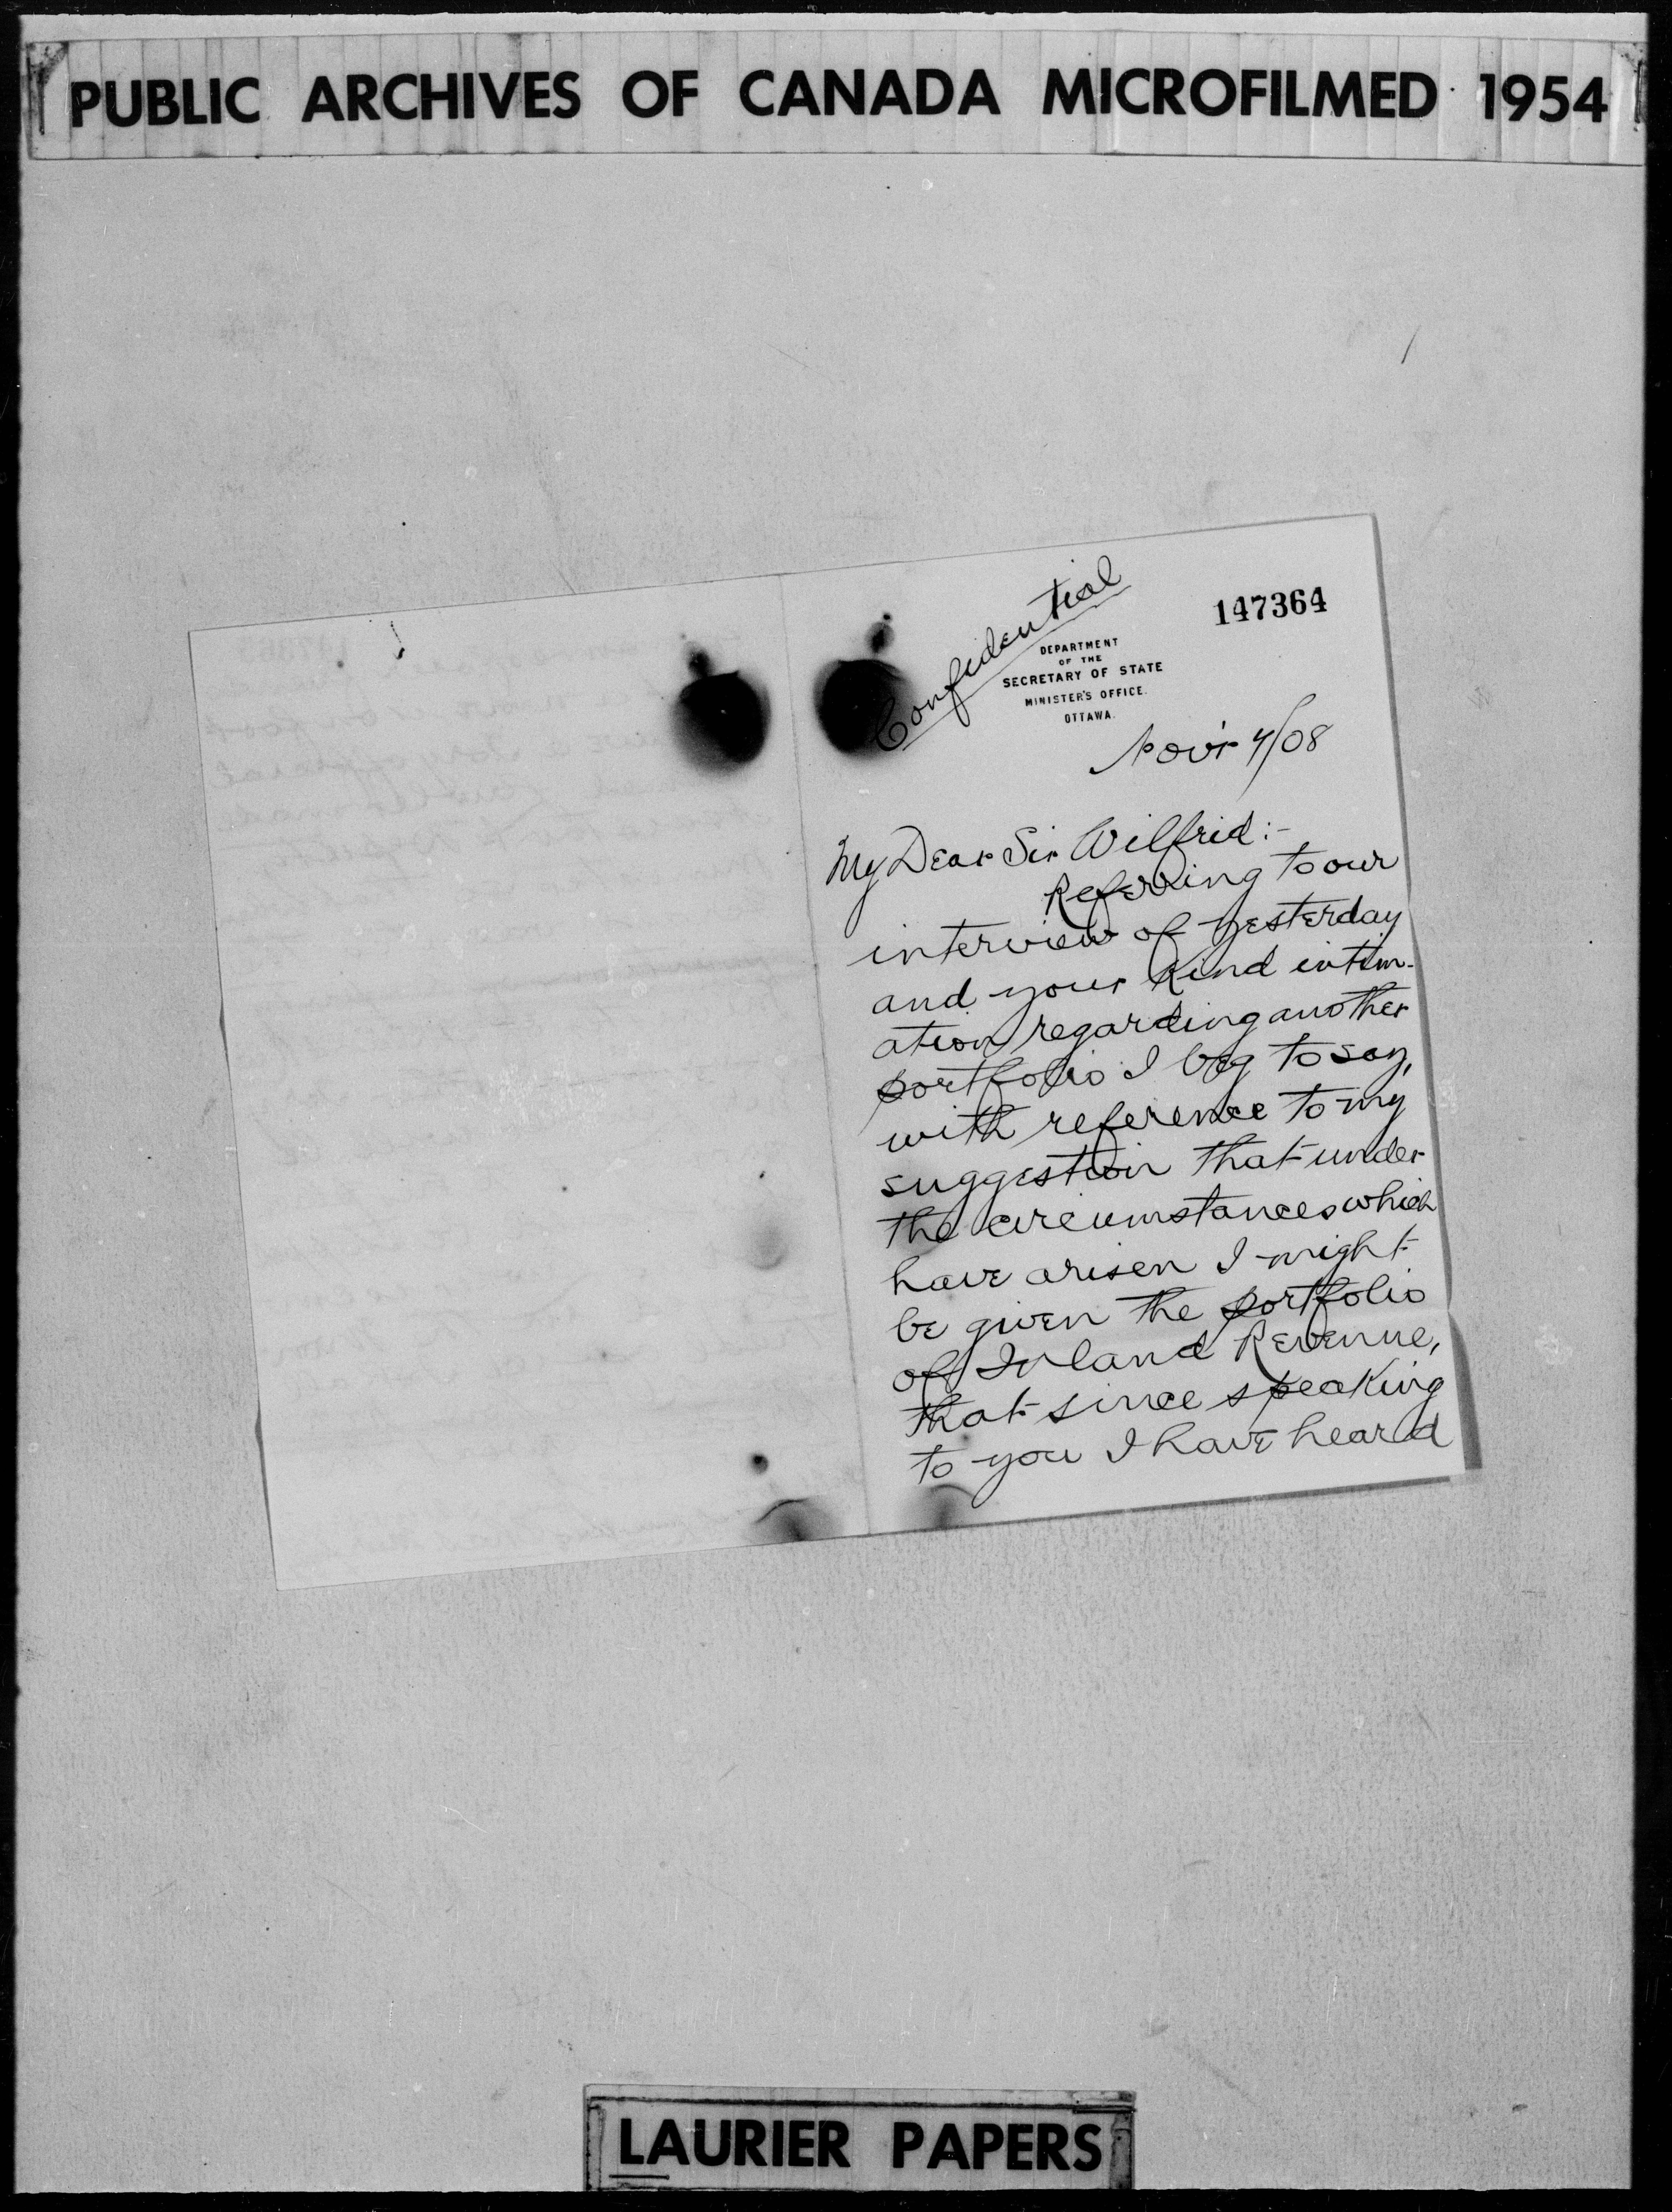 PUBLIC ARCHIVES OF CANADA MICROFILMED 1954
Confidential
147364
DEPARTMENT
OF THE
SECRETARY OF STATE
MINISTER'S OFFICE.
OTTAWA.
Nov'r 4/08
My Dear Sir Wilfrid:-
Referring to our
interview of yesterday
and your kind intim-
ation regarding another
portfolio I beg to say,
with reference to my
suggestion that under
the circumstances which
have arisen I might
be given the portfolio
of Inland Revenue,
that since speaking
to you I have heard
LAURIER PAPERS